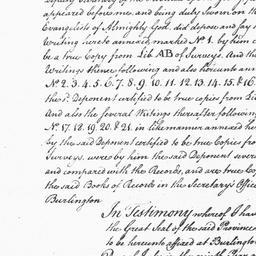 Deputy
appeared before me, and being duly Sworn on the
Evangelists of Almighty God, did depose and say
Writing hereto annexed, marked No. 1. by him c
be a true Copy from Lib. AB of Surveys. And th
Writings there following and also hereunto ann
No. 2. 3. 4. 5. 6. 7. 8. 9. 10. 11. 12. 13. 14. 15. & 16.
the sd. Deponent certified to be true copies from L
And also the several Writings thereafter following
No. 17. 18. 19. 20. & 21. in like manner annexed he
by the said Deponent certified to be true Copies fro
Surveys, were by him the said Deponent
and compared with the Records, and are true Cop
the said Books of Records in the Secretary's Offic
Burlington
In Testimony whereof I hav
the Great Seal of the said Province
to be hereunto affixed at Burlington